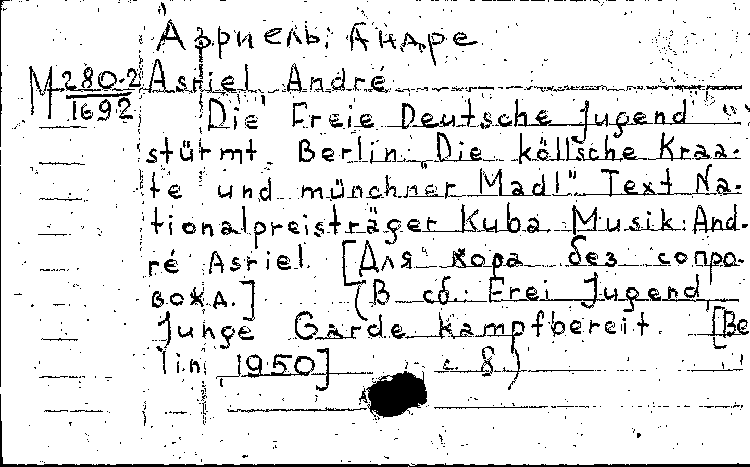 Азриель, Андре
M 280-2 Asriel André
1692 Die "Freie Deutsche Jugend"
stürmt Berlin. "Die köllsche Kraa-
te und münchner Madl". Text Na-
tionalpreisträger Kuba. Musik: And-
ré Asriel. [Для хора без сопро-
вожд.] (В сб.: Frei Jugend
Junge Garde kampfbereit. [Be
lin 1950] с. 8.)